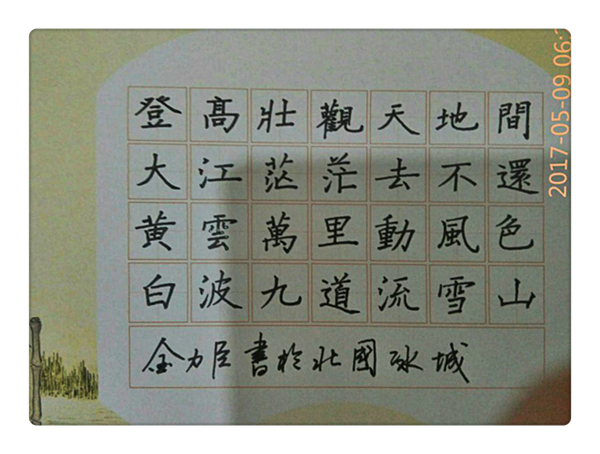 登高壯觀天地間
大江茫茫去不還
黃雲萬里動風色
白波九道流雪山
金力臣書於北國冰城
2017-05-09 06: